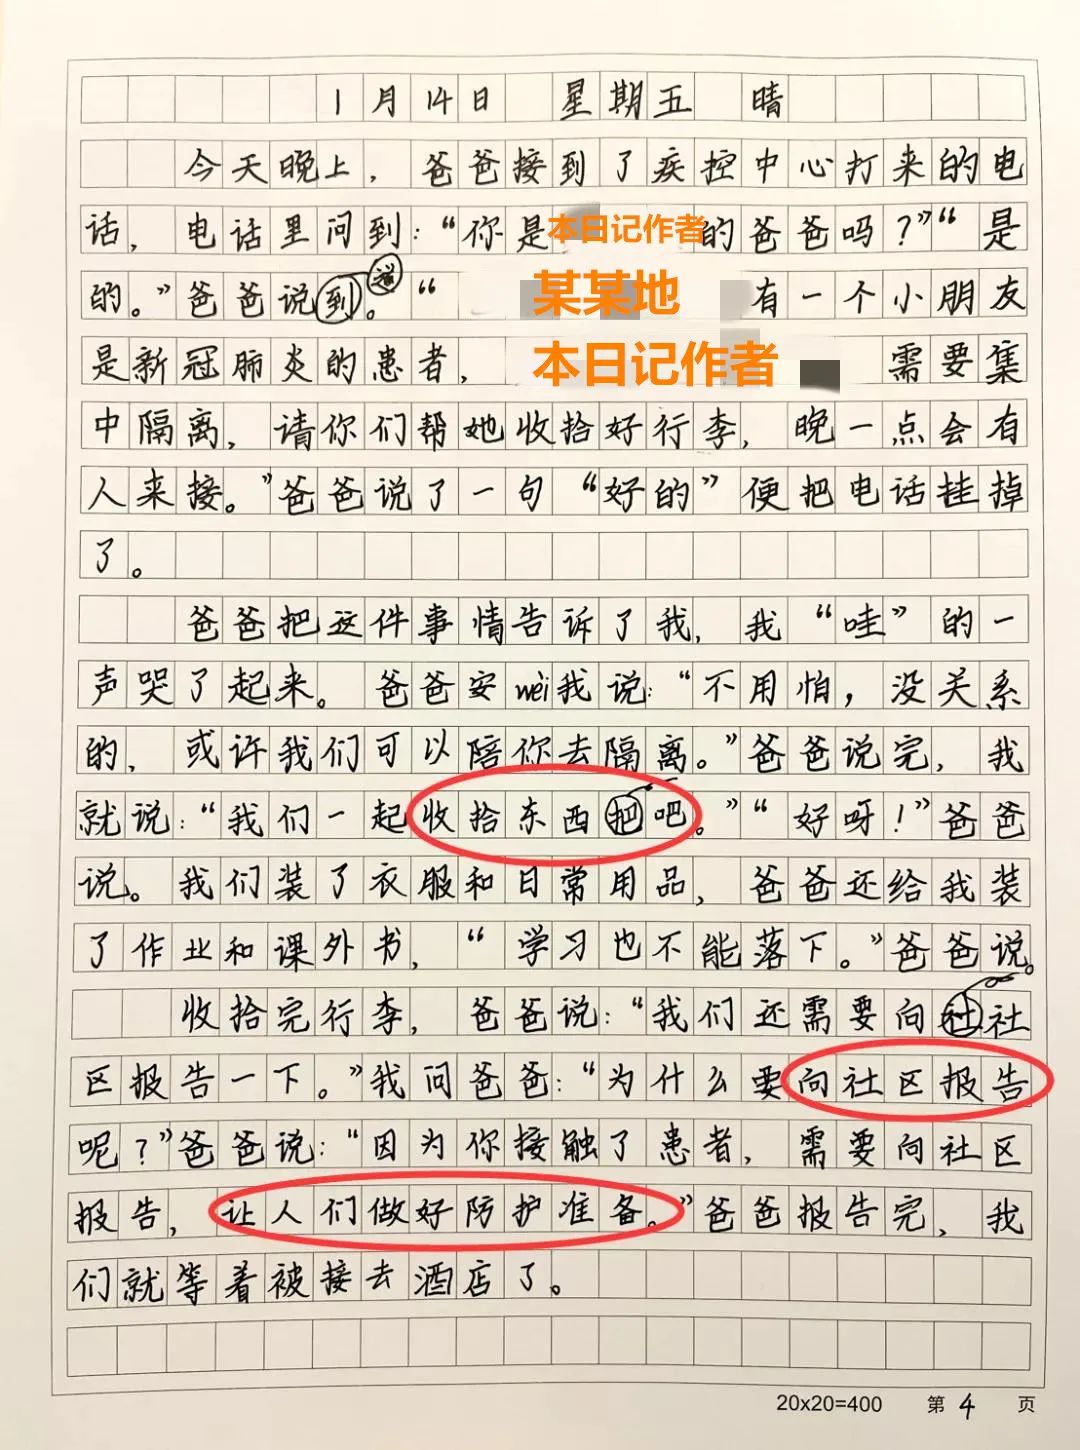 1月14日 星期五 晴
今天晚上，爸爸接到了疾控中心打来的电
话，电话里问到：“你是本日记作者的爸爸吗？”“是
的。”爸爸说到道。“某某地有一个小朋友
是新冠肺炎的患者，本日记作者需要集
中隔离，请你们帮她收拾好行李，晚一点会有
人来接。”爸爸说了一句“好的”便把电话挂掉
了。
爸爸把这件事情告诉了我，我“哇”的一
声哭了起来。爸爸安wèi我说：“不用怕，没关系
的，或许我们可以陪你去隔离。”爸爸说完，我
就说：“我们一起收拾东西把吧。”“好呀！”爸爸
说。我们装了衣服和日常用品，爸爸还给我装
了作业和课外书，“学习也不能落下。”爸爸说。
收拾完行李，爸爸说：“我们还需要向社社
区报告一下。”我问爸爸：“为什么要向社区报告
呢？”爸爸说：“因为你接触了患者，需要向社区
报告，让人们做好防护准备。”爸爸报告完，我
们就等着被接去酒店了。
20x20=400 第4页